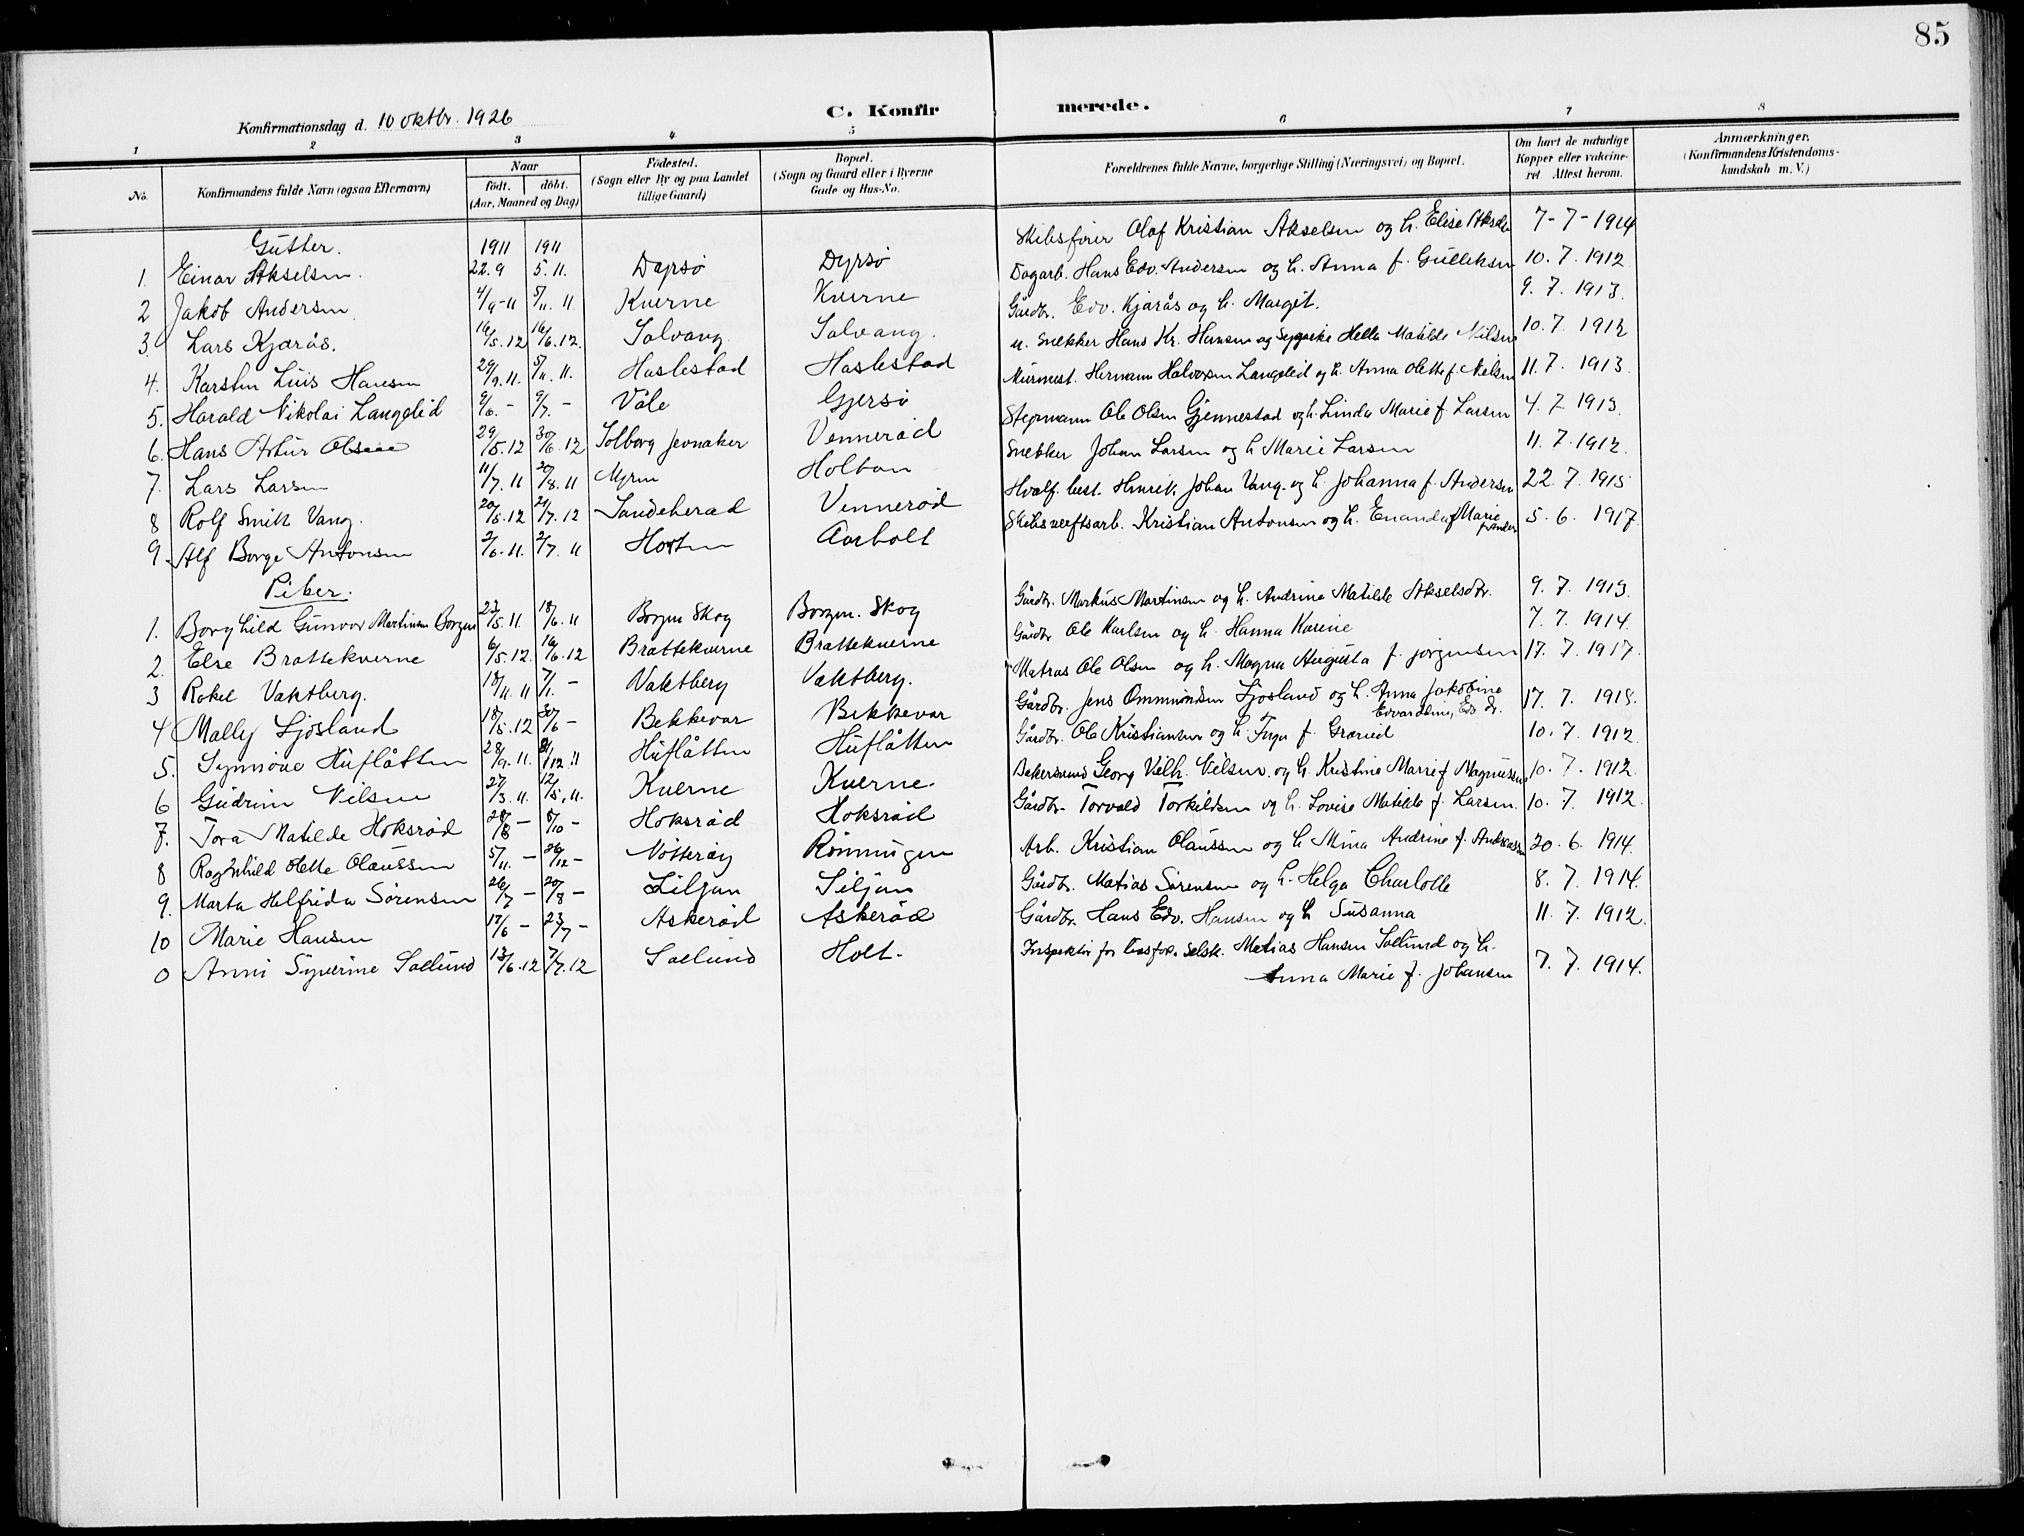 85
Konfirmationsdag d. 10 oktbr. 1926 C. Konfirmerede.
1 2 3 4 5 6 7 8
No. Konfirmandens fulde Navn (ogsaa Efternavn) Naar født. døbt. (Aar, Maaned og Dag) Fødested. (Sogn eller By og paa Landet tillige Gaard) Bopæl. (Sogn og Gaard eller i Byerne Gade og Hus-No. Forældrenes fulde Navne, borgerlige Stilling (Næringsvei) og Bopæl. Om havt de naturlige Kopper eller vakcineret Attest herom. Anmærkninger. (Konfirmandens Kristendomskundskab m. V.)
Gutter. 1911 1911
1. Einar Akselsen. 22.9 5.11. Dyrsö Dyrsö Skibsfører Olaf Kristian Akselsen og h. Elise Akselsen 7-7-1914
2 Jakob Andersen. 4/9-11 5/11. 11. Kverne Kverne Dagarb. Hans Edv. Andersen og h. Anna f. Gulliksen 10.7.1912
3. Lars Kjærås. 16/5.12 16/6.12. Solvang Solvang. Gårdbr. Edv. Kjærås og h. Margit. 9.7.1913.
4. Karsten Luis Hansen 29/9.11. 5/11. 11. Haslestad Haslestad u. Snekker Hans Kr. Hansen og Hella Matilde Nilsen 10.7.1912
5. Harald Nikolai Langelid 9/6. - 9/7. - Våle Gjersö Murmest. Hermann Halvorsen Langelid og h. Anna Olette f. Nielsen 11.7.1913.
6. Hans Artur Olsen 29/5.12 30/6.12 Solberg Jevnaker Vennerød Ole Olsen Gjennestad og h. Linda Marie f. Larsen 4.7.1913.
7. Lars Larsen 11/7.11 20/8.11 Myren Holtan Snekker Johan Larsen og h Marie Larsen 11.7.1912.
8 Rolf Smith Vang. 20/5.12 21/7.12 Sandeherad Vennerød Hvalf. best. Henrik Johan Vang og h. Johanna f. Andersen 22.7.1915
9. Alf Borge Antonsen 2/6.11. 2/7.11 Horten Aarholt Skibsverftsarb. Kristian Antonsen og h. Marie 5.6.1917
Piker.
1. Borghild Gunvor Martinsen Borgen 23/5.11. 18/6.11 Borgen Skog Borgen. Skog Gårdbr. Markus Martinsen og h. Andrine Matilde Akselsdtr. 9.7.1913.
2. Else Brattekverne 6/5.12. 16/6.12 Brattekverne Brattekverne Gårdbr Ole Karlsen og h. Hanna Karine 7.7.1914.
3 Rakel Vaktberg. 18/11.11 7/1. - Vaktberg Vaktberg. Matros Ole Olsen og h. Magna Augusta f. Jørgensen 17.7.1917.
4 Mally Ljosland 18/5.12 30/6 - Bekkevar Bekkevar Gårdbr. Jens Ommundsen Ljosland og h. Anna Jakobine 17.7.1918.
5. Synnöve Huflåtten 28/9.11. 31/12.11 Huflåtten Huflåtten Gårdbr. Ole Kristiansen og h. Inga f. Graneid 10.7.1912
6 Gudrun Nilsen 27/3.11. 12/5.11. Kverne Kverne. Bakersvend Georg Vilh. Nilsen og h. Kristine Marie f. Magnussen 10.7.1912.
7. Tora Matilde Hoksrød 28/8 - 8/10 - Hoksrød Hoksrød Gårdbr. Torvald Torkildsen og h. Lovise Matilde f. Larsen. 10.7.1912.
8 Ragnhild Olette Olaussen 5/11. - 26/12 - Nötteröy Rönningen Arb. Kristian Olaussen og h Mina Andrine f. Andreassen 20.6.1914.
9. Marta Helfrida Sörensen 26/7 - 20/8 - Siljan Siljan Gårdbr. Matias Sörensen og h. Helga Charlotte 8.7.1914.
10 Marie Hansen 17/6 - 23/7 - Askerød Askerød Gårdbr. Hans Edv. Hansen og h Susanna 11.7.1912.
0 Anni Syverine Solund 13/6.12 7/7.12 Solund Holt. Inspektör for livsfors. selsk. Matias Hansen Solund og h.
Anna Marie f. Johansen 7.7.1914.